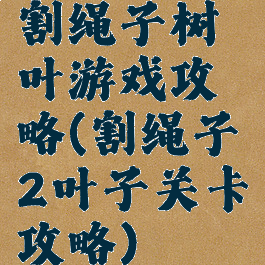 割绳子树
叶游戏攻
略(割绳子
2叶子关卡
攻略)